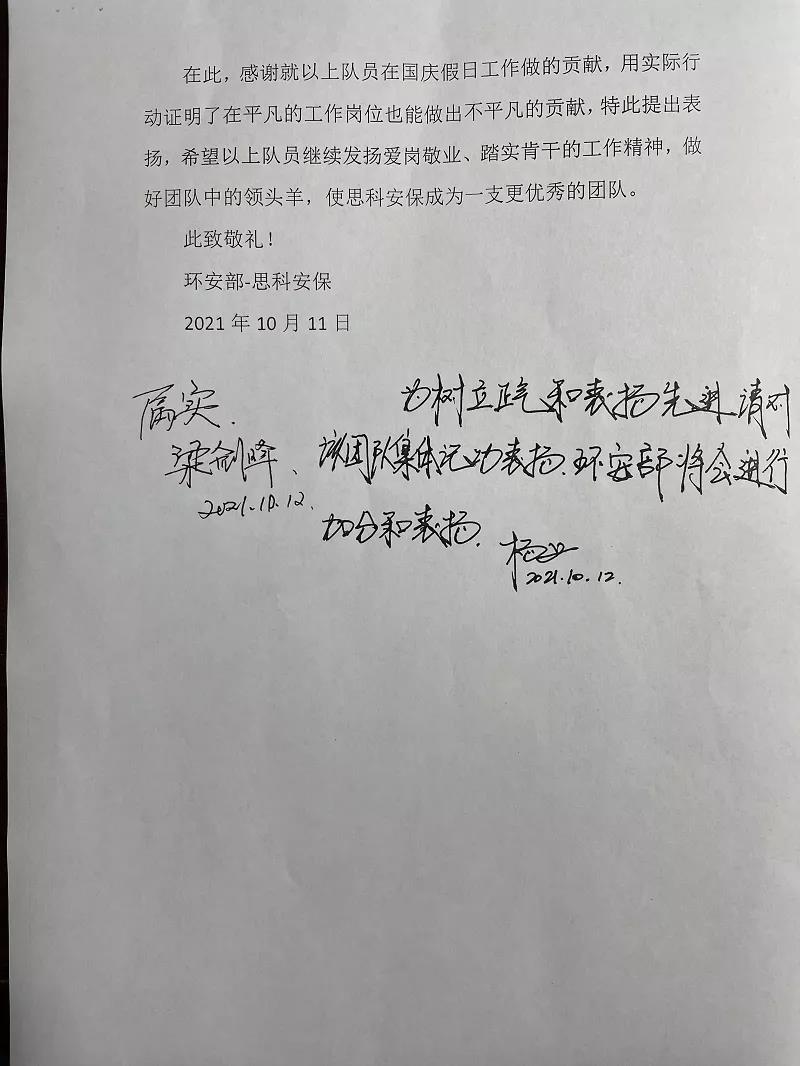 在此，感谢就以上队员在国庆假日工作做的贡献，用实际行
动证明了在平凡的工作岗位也能做出不平凡的贡献，特此提出表
扬，希望以上队员继续发扬爱岗敬业、踏实肯干的工作精神，做
好团队中的领头羊，使思科安保成为一支更优秀的团队。
此致敬礼！
环安部-思科安保
2021 年 10 月 11 日
属实.
梁剑峰、
2021.10.12.
为树立正气和表扬先进请对
该团队集体记功表扬.环安部将会进行
加分和表扬.
杨
2021.10.12.